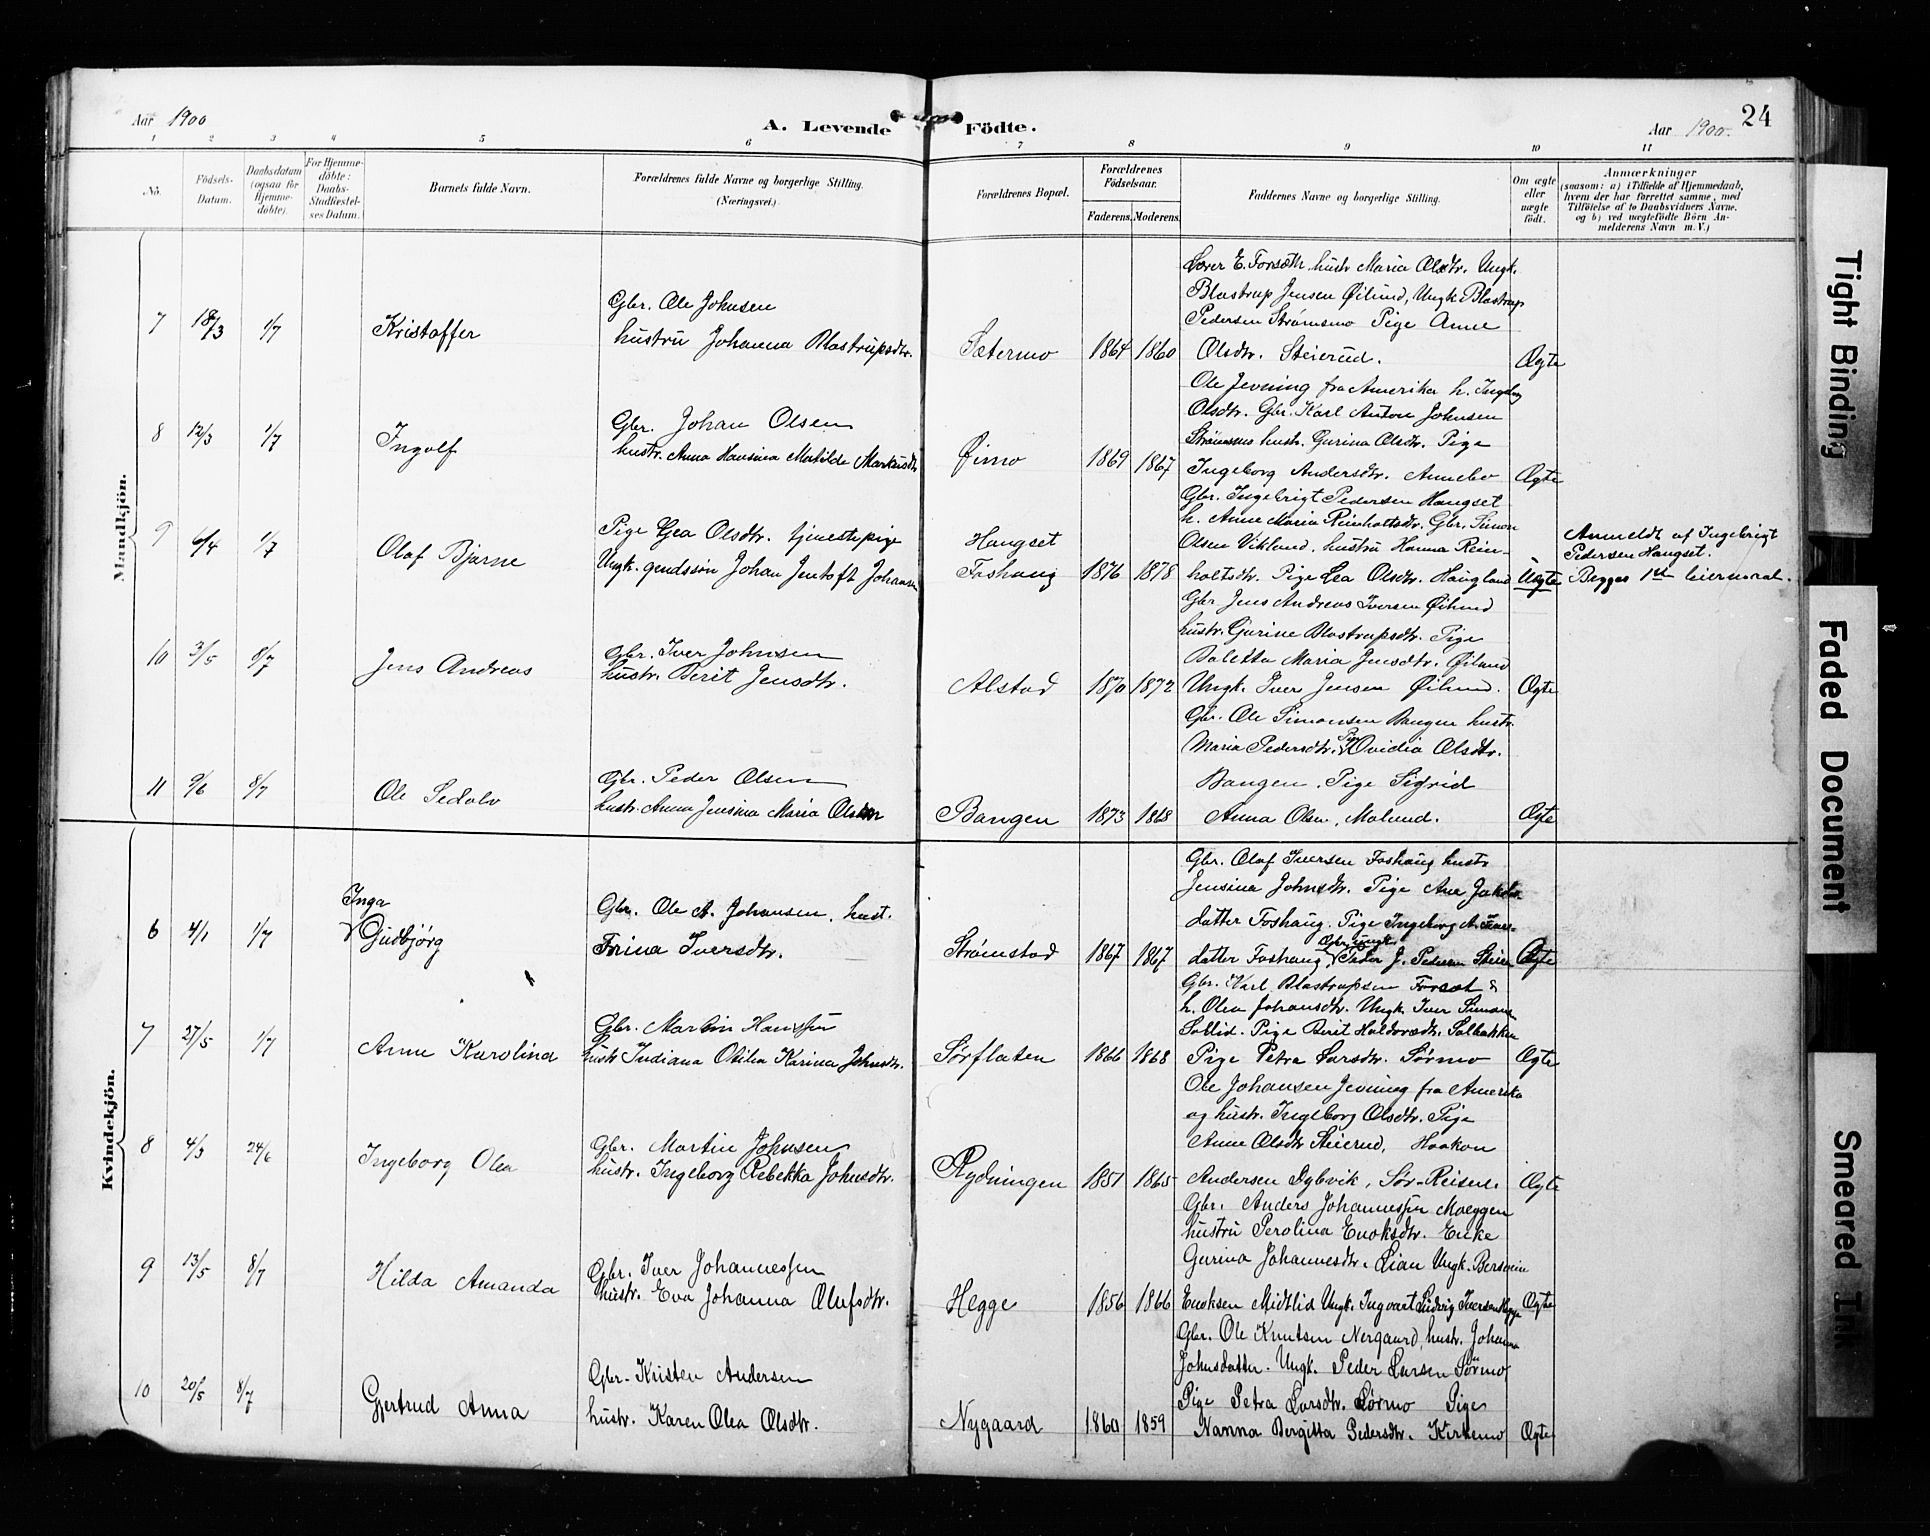 Aar 1900
A. Levende Födte.
Aar 1900.
24
1 2 3 4 5 6 7 8 9 10 11
No.
Födsels-
Datum.
Daabsdatum
(ogsaa for
Hjemme-
döbte).
For Hjemme-
döbte:
Daabs-
Stadfæstel-
ses Datum.
Barnets fulde Navn.
Forældrenes fulde Navne og borgerlige Stilling.
(Næringsvei.)
Forældrenes Bopæl.
Forældrenes
Födselsaar.
Faderens. Moderens.
Faddernes Navne og borgerlige Stilling.
Om ægte
eller
uægte
födt.
Anmærkninger
(saasom: a) i Tilfælde af Hjemmedaab,
hvem der har forrettet samme, med
Tilföielse af to Daabsvidners Navne.
og b) ved uægtefödte Börn An-
melderens Navn m. V.)
Mandkjön.
7 18/3 1/7 Kristoffer
Gbr. Ole Johnsen
hustru Johanna Blastrupsdtr.
Sætermo 1864 1860
Lærer E. Forsæth hustr Maria Olsdtr. Ungk.
Blastrup Jensen Øilund, Ungk. Blastrup
Pedersen Strømsmo Pige Anne
Olsdtr. Steierud.
Ægte
8 12/3 1/7 Ingolf
Gbr. Johan Olsen
hustr. Anna Hansina Matilde Markusdtr
Øimo 1869 1867
Ole Jevning fra Amerika h. Ingeborg
Olsdtr. Gbr. Karl Anton Johnsen
Strømsmo hustr. Gurina Olsdtr. Pige
Ingeborg Andersdtr. Annebo
Ægte
9 6/4 1/7 Olaf Bjarne
Pige Gea Olsdtr. tjenestepige
Ungk. gmdssøn Johan Jentoft Johansen
Haugset
Foshaug 1876 1878
Gbr. Ingebrigt Pedersen Haugset
h. Anne Maria Reinholtsdtr. Gbr. Simon
Olsen Vikland, hustru Hanna Rein-
holtsdtr. Pige Lea Olsdtr. Haugland
Uægte
Anmeldt af Ingebrigt
Pedersen Haugset.
Begges 1ste leiermaal.
10 3/5 8/7 Jens Andreas
Gbr. Iver Johnsen
hustr. Berit Jensdtr.
Alstad 1870 1872
Gbr Jens Andreas Iversen Øilund
hustr. Gurine Blastrupsdtr. Pige
Baletta Maria Jensdtr. Øilund
Ungk. Iver Jensen Øilund.
Ægte
11 9/6 8/7 Ole Sedolv
Gbr. Peder Olsen
hustr. Anna Jensina Maria Olsdtr
Bangen 1873 1868
Gbr. Ole Simonsen Bangen hustr.
Maria Pedersdtr. Pige Ovidia Olsdtr.
Bangen, Pige Sigrid
Anna Olsen, Molund.
Ægte
Kvindekjön.
6 4/1 1/7 Inga
Gudbjörg
Gbr. Ole A. Johansen, hust.
Trina Iversdtr.
Strömstad 1867 1867
Gbr. Olaf Iversen Foshaug hustr
Jensina Johnsdtr. Pige Ane Jakobs
datter Foshaug. Pige Ingeborg A. Iver-
datter Foshaug, Ungk. Peder J. Pedersen Steien
Ægte
7 27/5 1/7 Anne Karolina
Gbr. Martin Hanssen
hustr Indiana Otilia Karina Johnsdtr.
Sörflaten 1866 1868
Gbr. Karl Blastrupsen Forsæt &
h. Olea Johansdtr. Ungk. Iver Simonsen
Sollid. Pige Berit Haldorsdtr. Solbakken
Pige Petra Larsdtr. Sörmo
Ægte
8 4/3 24/6 Ingeborg Olea
Gbr. Martin Johnsen
hustr. Ingeborg Rebekka Johnsdtr.
Rydningen 1851 1865
Ole Johansen Jevning fra Amerika
og hustr. Ingeborg Olsdtr. Pige
Anne Olsdtr Steierud, Haakon
Andersen Dybvik, Sör-Reisen.
Ægte
9 13/5 8/7 Hilda Amanda
Gbr. Iver Johannessen
hustr. Eva Johanna Olufsdtr.
Hegge 1856 1866
Gbr. Anders Johannessen Moeggen
hustru Perolina Enoksdtr. Enke
Gurina Johannesdtr. Lian Ungk. Berserin
Enoksen Midtlid Ungk. Ingvart Ludvig Iversen Hegge
Ægte
10 20/5 8/7 Gjertrud Anna
Gbr. Kristen Andersen
hustr. Karen Olea Olsdtr.
Nygaard 1860 1859
Gbr. Ole Knutsen Nergaard, hustr. Johanna
Johnsdatter. Ungk. Peder Larsen Sörmo
Pige Petra Larsdtr. Sörmo Pige
Nanna Bergitta Pedersdtr. Kirkemo
Ægte
Tight Binding
Faded Document
Smeared Ink